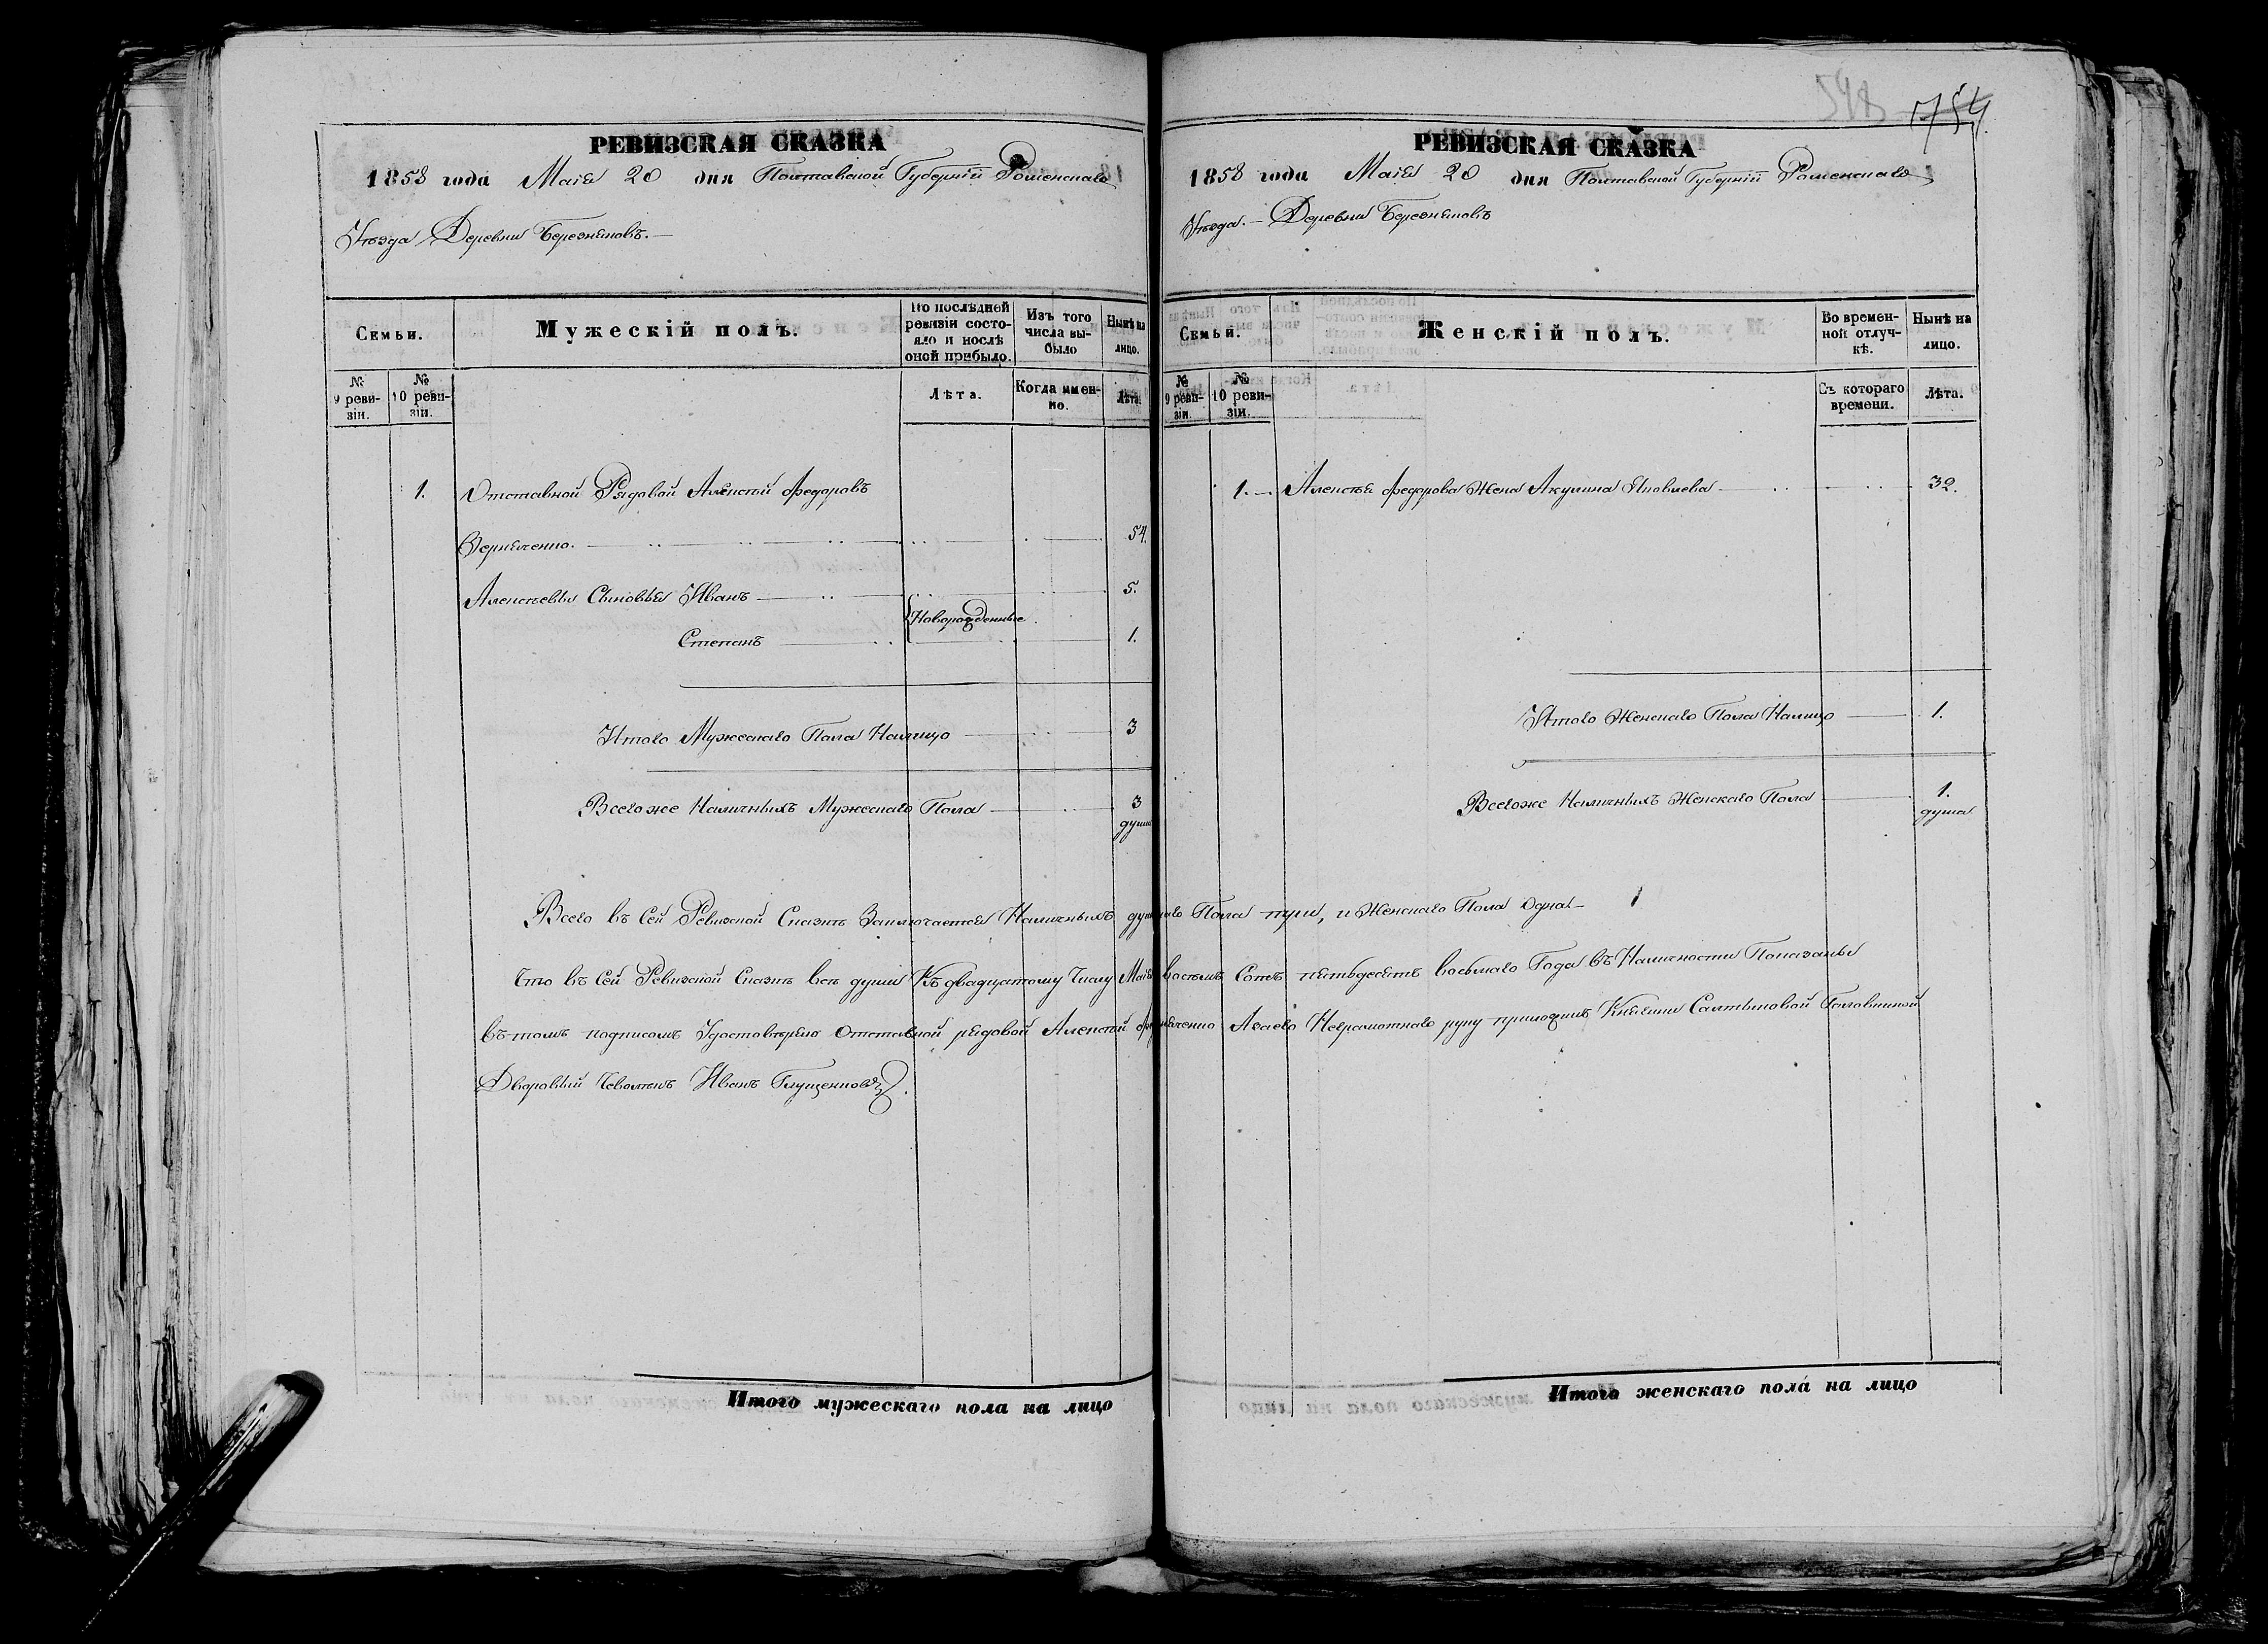 548 754
РЕВИЗСКАЯ СКАЗКА
1858 года Маія 20 дня Полтавской Губерніи Роменскаго
Уѣзда Деревни Бережнковъ.
Семьи.
Мужескій полъ.
По послѣдней ревизіи состояло и послѣ оной прибыло.
Изъ того числа выбыло
Нынѣ на лицо.
№ 9 ревизіи.
№ 10 ревизіи.
Лѣта.
Когда именно.
Лѣта.
1. Отставной Рядовой Алексѣй Федоровъ
54.
Алексѣевы Сыновья Иванъ 5.
Новорожденные
Степанъ 1.
Итого Мужескаго Пола Налицо 3
Всегоже Наличныхъ Мужескаго Пола 3
души
РЕВИЗСКАЯ СКАЗКА
1858 года Маія 20 дня Полтавской Губерніи Роменскаго
Уѣзда. Деревни
Семьи.
Женскій полъ.
Во временной отлучкѣ.
Нынѣ на лицо.
№ 9 ревизіи.
№ 10 ревизіи.
Съ котораго времени.
Лѣта.
1. Алексѣя Федорова Жена Акулина Яковлева 32.
Итого Женскаго Пола Налицо 1.
Всегоже Наличныхъ Женскаго Пола 1.
душа
Всего въ Сей Ревизской Сказкѣ Заключается Наличныхъ Пола три, и Женскаго Пола Одна
Что въ Сей Ревизской Сказкѣ всѣ души Къ двадцатому Числу Маія восемь Сотъ пятьдесятъ восьмаго Года въ Наличности Показаны
въ томъ подписомъ Удостовѣряю Отставной рядовой Алексѣй Азаего Неграмотнаго руку приложилъ Княгини Салтыковой Головкиной
Дворовый Человѣкъ Иванъ Глущенковъ.
Итого мужескаго пола на лицо
Итого женскаго пола на лицо